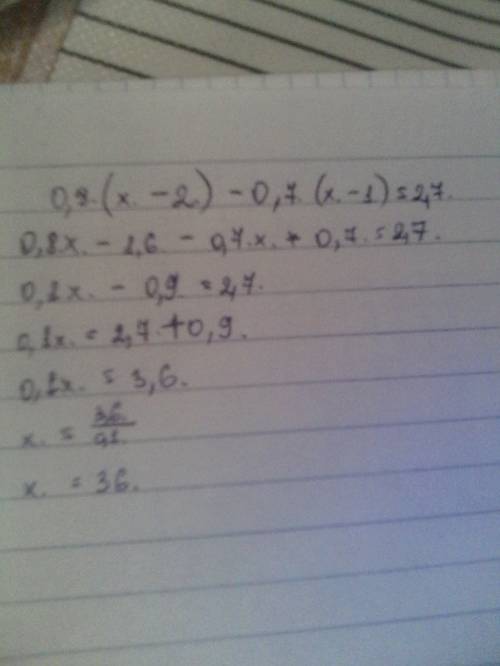 0,8.(x. - 2.) - 0,7.(x. - 1) = 2,7.
0,8x. - 1,6 - 0,7.x. + 0,7. = 2,7.
0,1x. - 0,9. = 2,7.
0,1x. = 2,7. + 0,9.
0,1x. = 3,6.
x. = 3,6./0,1.
x. = 36.